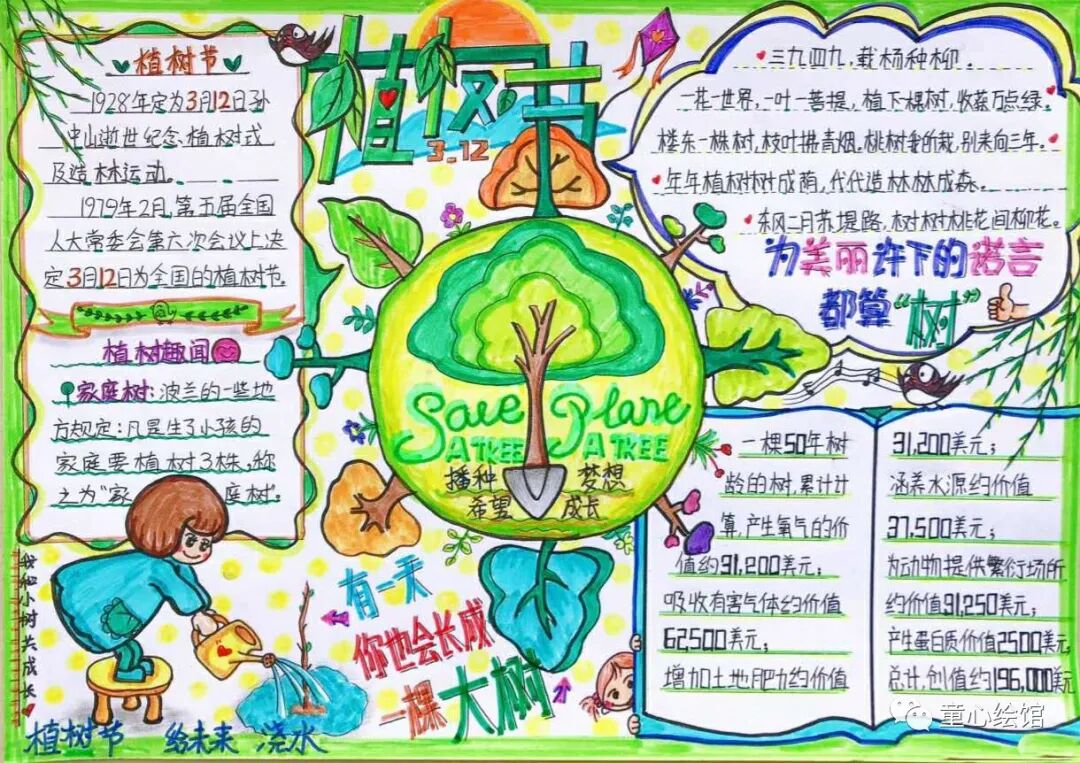 植树节
1928年定为3月12日孙
中山逝世纪念植树式
及造林运动。
1979年2月,第五届全国
人大常委会第六次会议上决
定3月12日为全国的植树节。
植树趣闻
家庭树:波兰的一些地
方规定:凡是生了小孩的
家庭要植树3株,称
之为"家庭树"。
我和小树共成长
植树节 给未来 浇水
植树节
3.12
Save Plane
A TREE A TREE
播种 梦想
希望 成长
有一天
你也会长成
一棵大树
三九四九,栽杨种柳。
一花一世界,一叶一菩提,植下一棵树,收获万点绿。
楼东一株树,枝叶拂青烟。桃树我所栽,别来向三年。
年年植树树成荫,代代造林林成森。
东风二月苏堤路,树树桃花间柳花。
为美丽许下的诺言
都算"树"
一棵50年树
龄的树,累计计
算,产生氧气的价
值约31,200美元;
吸收有害气体约价值
62500美元;
增加土地肥力约价值
31,200美元;
涵养水源约价值
37,500美元;
为动物提供繁衍场所
约价值31,250美元;
产生蛋白质价值2500美元;
总计,创值约196,000美元
童心绘馆